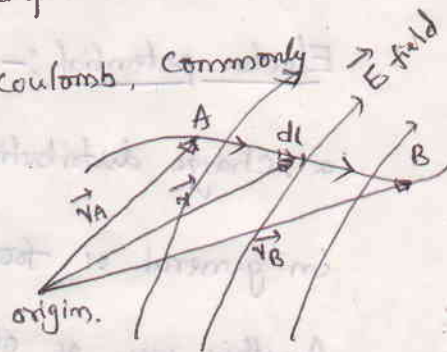 coulomb, commonly
E field
A
dl
B
r_A
r
r_B
origin.